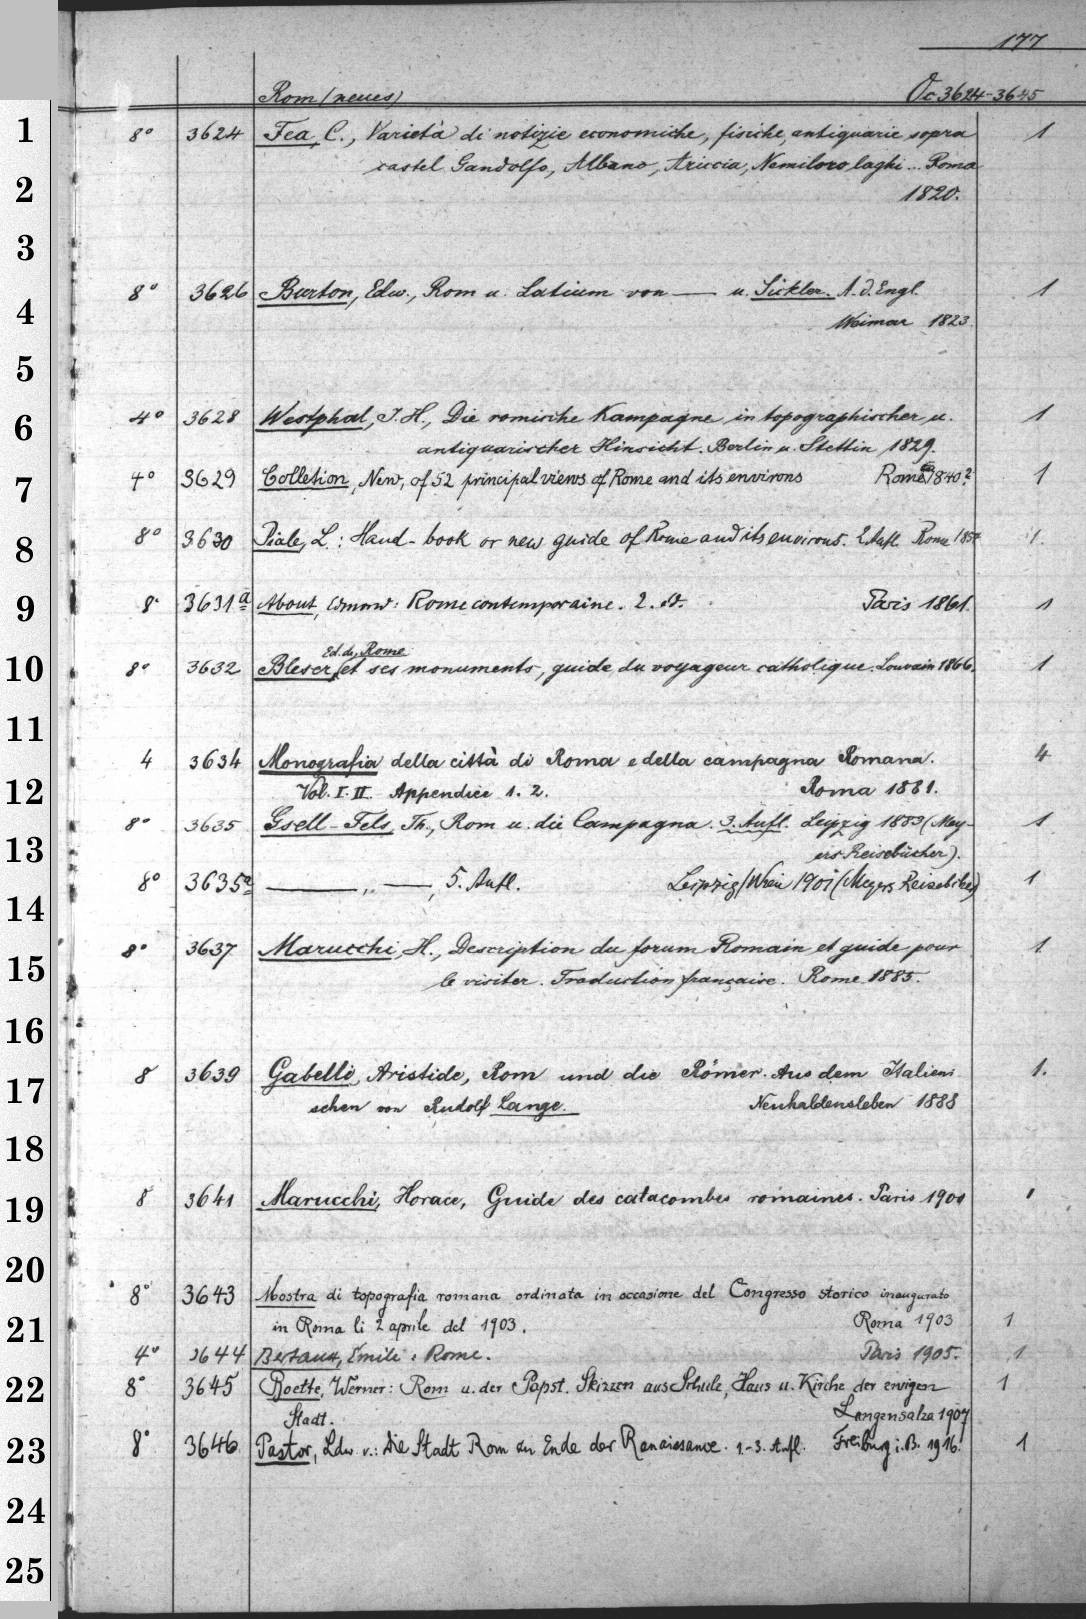 177
Rom (neues) Oc 3624-3645
1 8° 3624 Fea, C., Varietà di notizie economiche, fisiche, antiquarie sopra 1
castel Gandolfo, Albano, Ariccia, Nemi loro laghi... Roma
2 1820.
3
8° 3626 Burton, Edw., Rom u. Latium von — u. Sickler. A. d. Engl. 1
4 Weimar 1823.
5
6 4° 3628 Westphal, J. H., Die romische Kampagne in topographischer u. 1
antiquarischer Hinsicht. Berlin u. Stettin 1829.
7 4° 3629 Colletion, New, of 52 principal views of Rome and its environs Rome 1840? 1
8 8° 3630 Piale, L.: Hand-book or new guide of Rome and its environs. 2. Aufl. Rome 1.
9 8° 3631a About, Edmond: Rome contemporaine. 2. éd. Paris 1861. 1
Ed. de, Rome
10 8° 3632 Bleser, et ses monuments, guide du voyageur catholique. Louvain 1866. 1
11
4 3634 Monografia della città di Roma e della campagna Romana. 4
12 Vol. I. II. Appendice 1. 2. Roma 1881.
8° 3635 Gsell-Fels, Th., Rom u. die Campagna. 3. Aufl. Leipzig 1883 (Mey- 1
13 ers Reisebücher).
8° 3635a — „ —, 5. Aufl. Leipzig/Wien 1901 (Meyers Reisebücher) 1
14
8° 3637 Marucchi, H., Description du forum Romain et guide pour 1
15 le visiter. Traduction française. Rome 1885.
16
17 8 3639 Gabelli, Aristide, Rom und die Römer. Aus dem Italieni 1.
schen von Rudolf Lange. Neuhaldensleben 1888
18
19 8 3641 Marucchi, Horace, Guide des catacombes romaines. Paris 1900 1
20
8° 3643 Mostra di topografia romana ordinata in occasione del Congresso storico inaugurato
21 in Roma li 2 aprile del 1903. Roma 1903 1
4° 3644 Bertaux, Émile: Rome. Paris 1905. 1
22 8° 3645 Boette, Werner: Rom u. der Papst. Skizzen aus Schule, Haus u. Kirche der ewigen 1
Stadt. Langensalza 1907
23 8° 3646 Pastor, Ldw. v.: Die Stadt Rom zu Ende der Renaissance. 1-3. Aufl. Freiburg i. B. 1916. 1
24
25